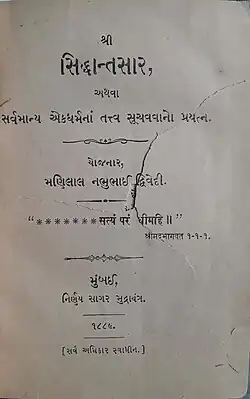 શ્રી
સિદ્ધાન્તસાર,
અથવા
સર્વમાન્ય એકધર્મનાં તત્ત્વ સુચવવાનો પ્રયત્ન.
યોજનાર,
મણિલાલ નભુભાઈ દ્વિવેદી.
“ * * * * * * * सत्यं परं धीमहि ॥ ”
श्रीमद्भागवत १-१-१.
મુંબઈ,
નિર્ણય સાગર મુદ્રાયંત્ર.
૧૮૮૯.
[ સર્વ અધિકાર સ્વાધીન. ]